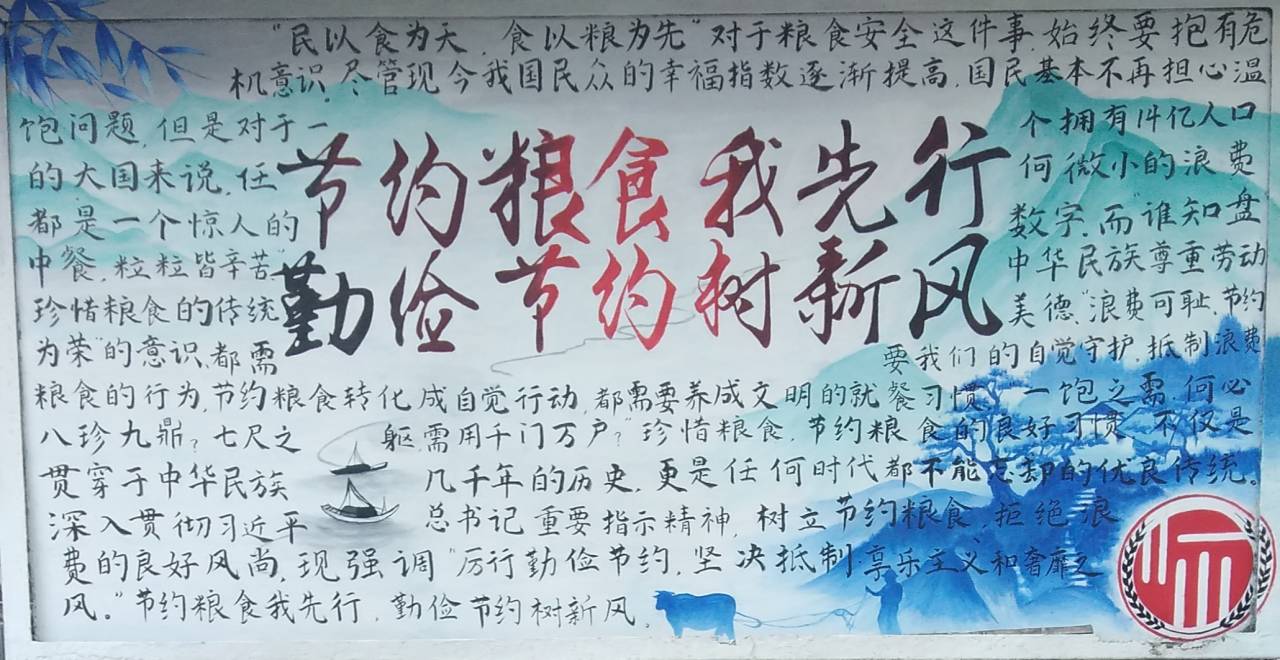 “民以食为天，食以粮为先”对于粮食安全这件事，始终要抱有危
机意识，尽管现今我国民众的幸福指数逐渐提高，国民基本不再担心温
饱问题，但是对于一个拥有14亿人口
的大国来说，任何微小的浪费
都是一个惊人的数字，而“谁知盘
中餐，粒粒皆辛苦”中华民族尊重劳动
珍惜粮食的传统美德，“浪费可耻，节约
为荣”的意识，都需要我们的自觉守护，抵制浪费
节约粮食我先行
勤俭节约树新风
粮食的行为，节约粮食转化成自觉行动，都需要养成文明的就餐习惯，一饱之需，何必
八珍九鼎？七尺之躯，需用千门万户？”珍惜粮食，节约粮食的良好习惯，不仅是
贯穿于中华民族几千年的历史，更是任何时代都不能忘却的优良传统。
深入贯彻习近平总书记重要指示精神，树立节约粮食，拒绝浪
费的良好风尚，现强调“厉行勤俭节约，坚决抵制享乐主义和奢靡之
风。”节约粮食我先行，勤俭节约树新风。
师